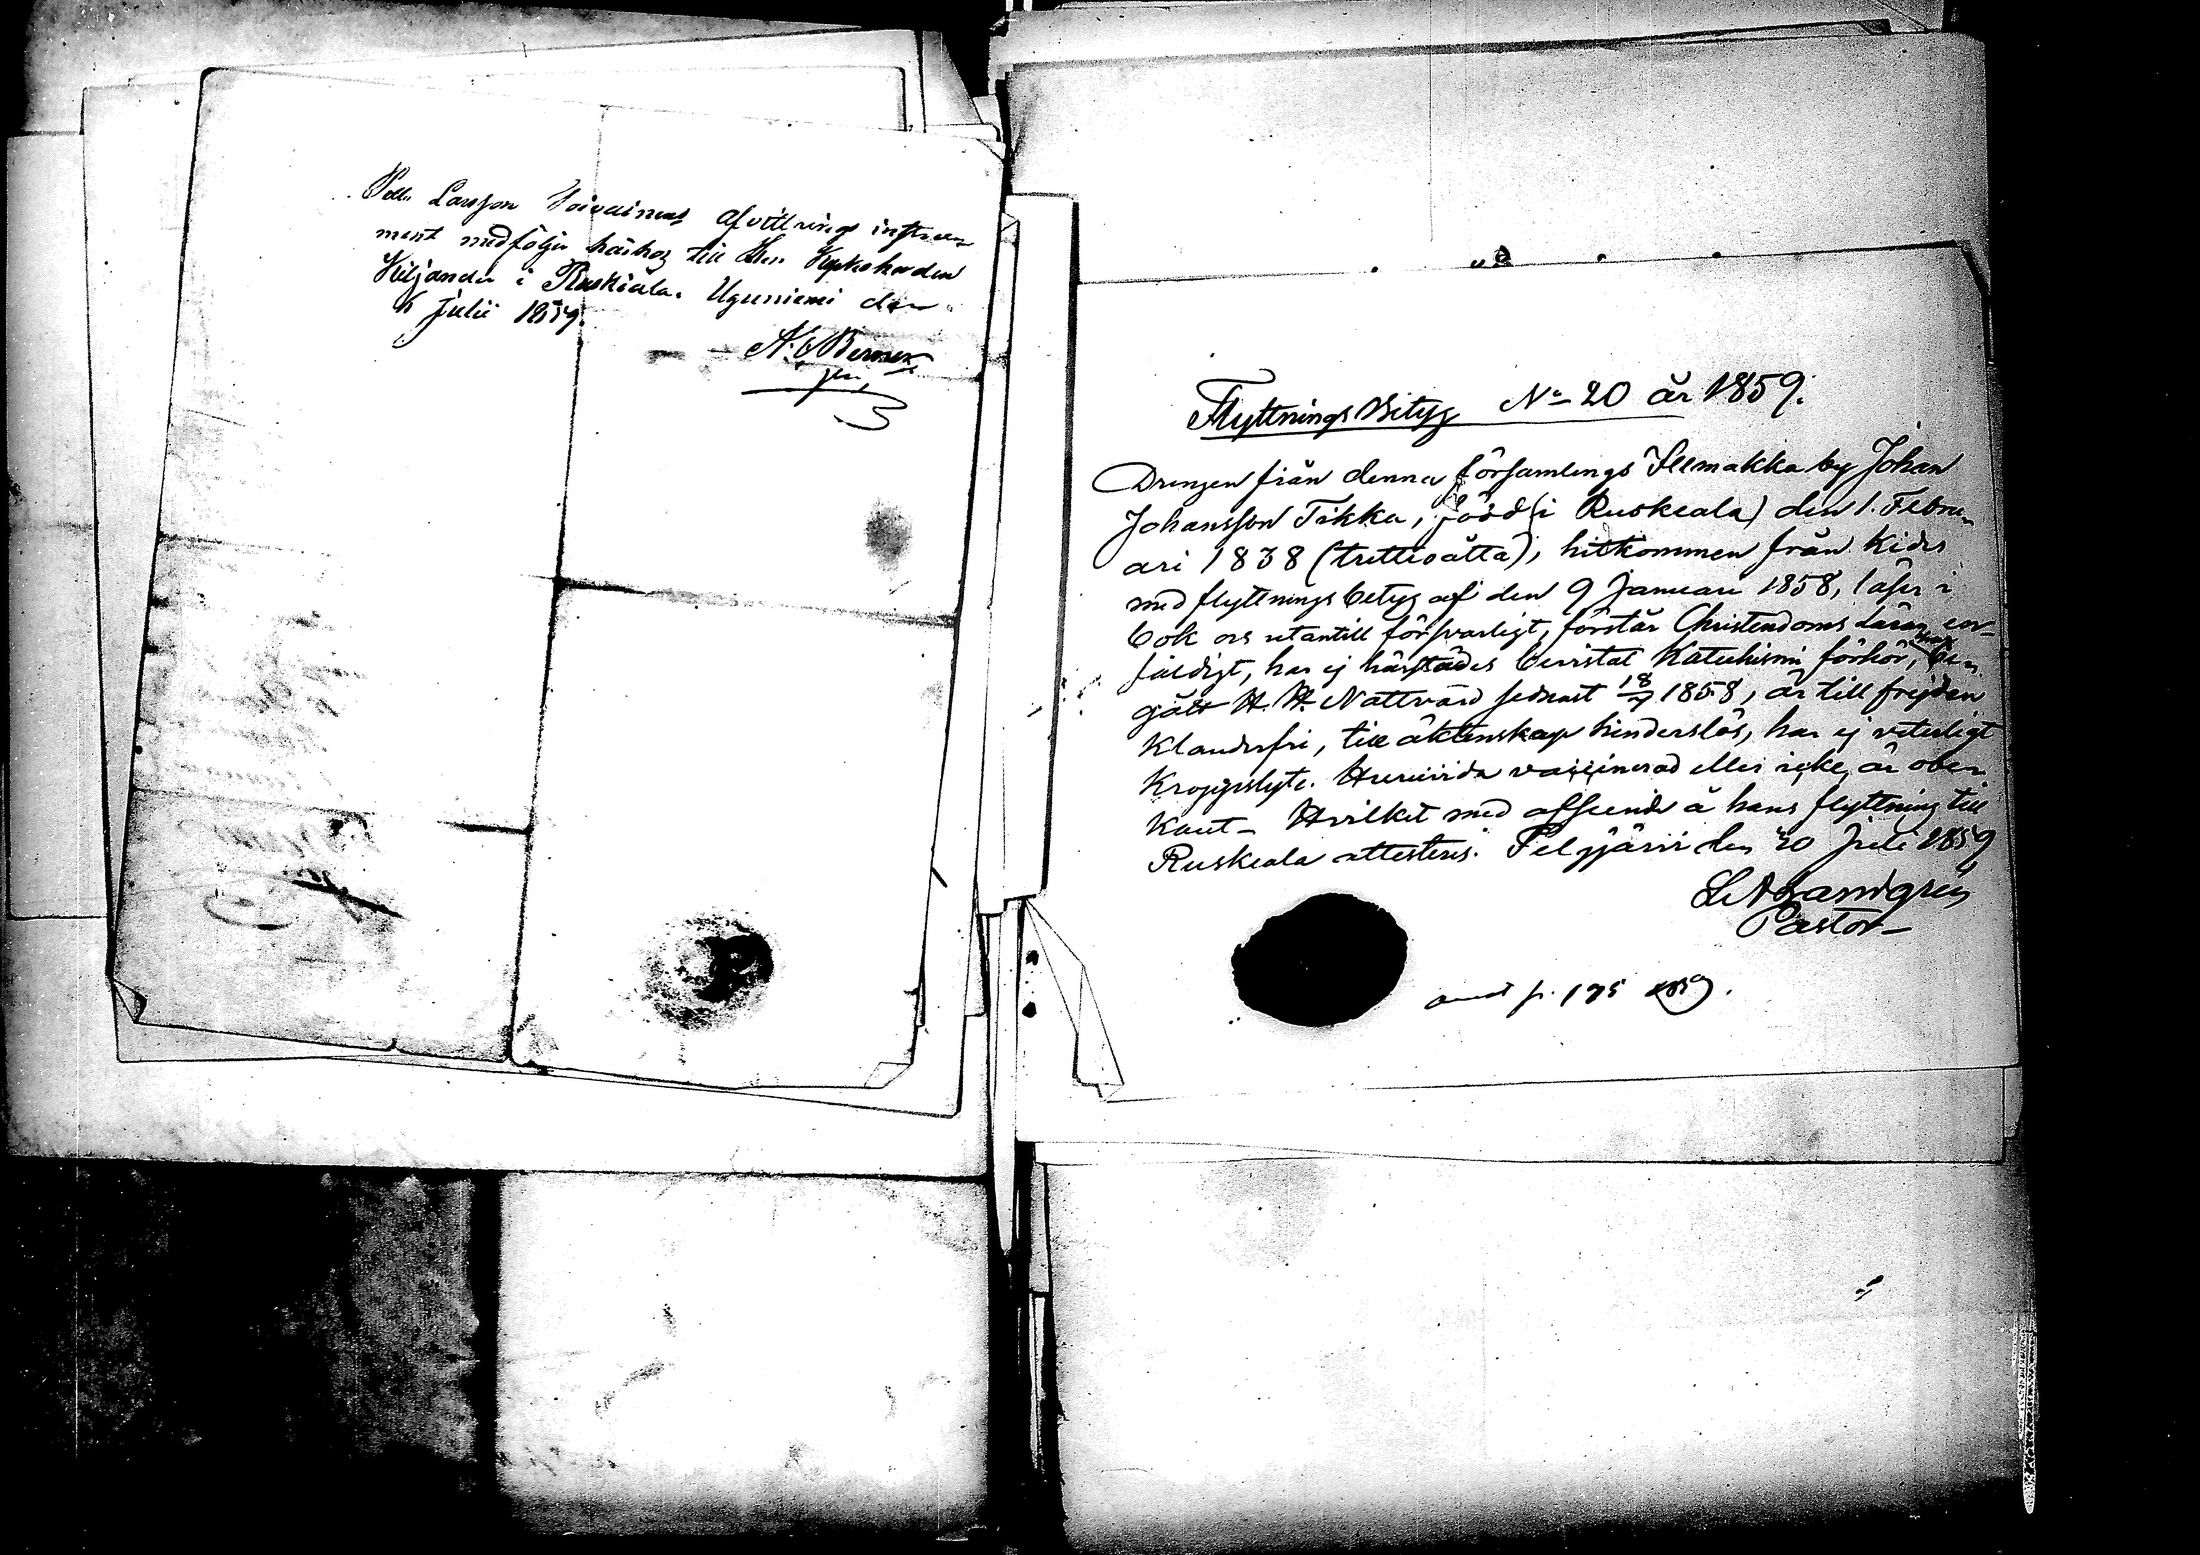 Larsson Toivainens afvittrings instru
ment medföljer härhos till Herr Kyrkoherden
Kiljander i Ruskiala. Uguniemi den
Julii 1859.
Flyttnings Betyg No 20 år 1859.
Drengen från denna församlings Ilmakka by Johan
Johansson Tikka, född (i Ruskeala) den 1. Febru
ari 1838 (trettioåtta), hitkommen från Kides
med flyttnings betyg af den 9 Januari 1858, läser i
bok och utantill försvarligt, förstår Christendoms Läran en-
faldigt, har ej härstädes bevistat Katechismi förhör, men
gått H. H. Nattvard sednast 18/7 1858, är till frejden
klanderfri, till äktenskap hinderslös, har ej veterligt
kroppslyte. Huruvida vaccinerad eller icke, är obe
kant – Hvilket med afseende å hans flyttning till
Ruskeala attesteras. Pelgjärvi den 20 Juli 1859
Pastor
p. 175 1859.